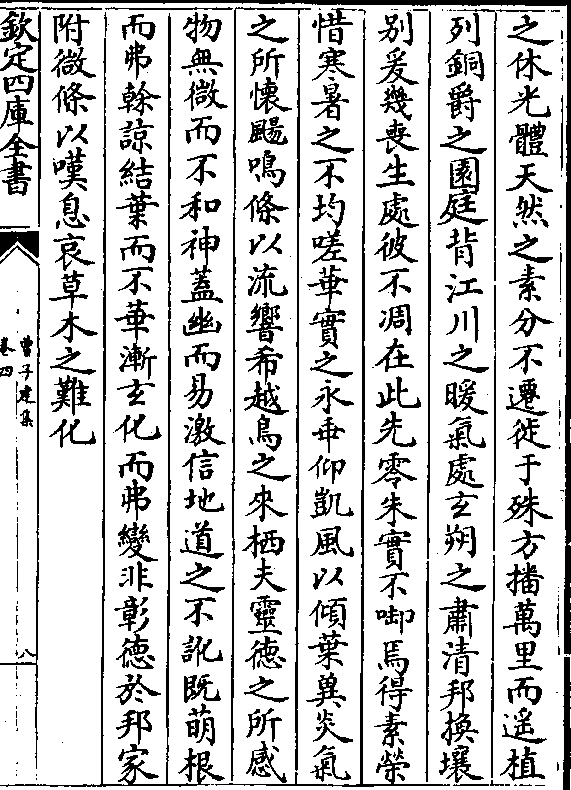 之休光體天然之素分不遷徙于殊方播萬里而遥植
列銅爵之園庭背江川之暖氣處玄朔之肅清邦換壤
别爰幾喪生處彼不凋在此先零朱實不啣焉得素榮
惜寒暑之不均嗟華實之永乖仰凱風以傾葉冀炎氣
之所懷颺鳴條以流響希越鳥之來栖夫靈徳之所感
物無微而不和神蓋幽而易激信地道之不訛既萌根
而弗榦諒結葉而不華漸玄化而弗變非彰徳於邦家
附微條以嘆息哀草木之難化
欽定四庫全書
曹子建集
卷四
八